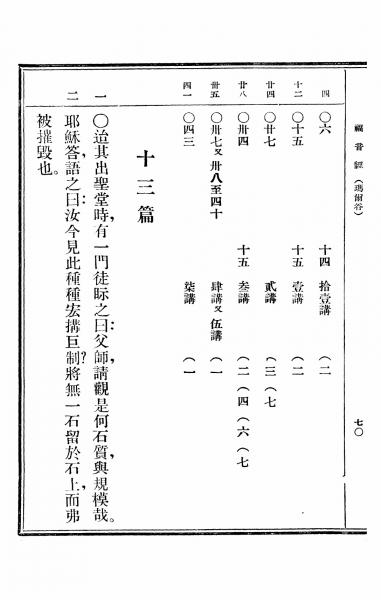 福音經（瑪爾谷） 七〇
四 〇六 十四 拾壹講 （二
十二 〇十五 十五 壹講 （二
廿四 〇廿七 貳講 （三（七
廿八 〇卅四 十五 叁講 （二（四（六（七
卅五 〇卅七又卅八至四十 肆講又伍講 （一
四一 〇四三 柒講 （一
十三篇
一 〇迨其出聖堂時，有一門徒眎之曰：父師，請觀是何石質，與規模哉。
二 耶穌答語之曰：汝今見此種種宏搆巨制？將無一石留於石上，而弗
被摧毀也。